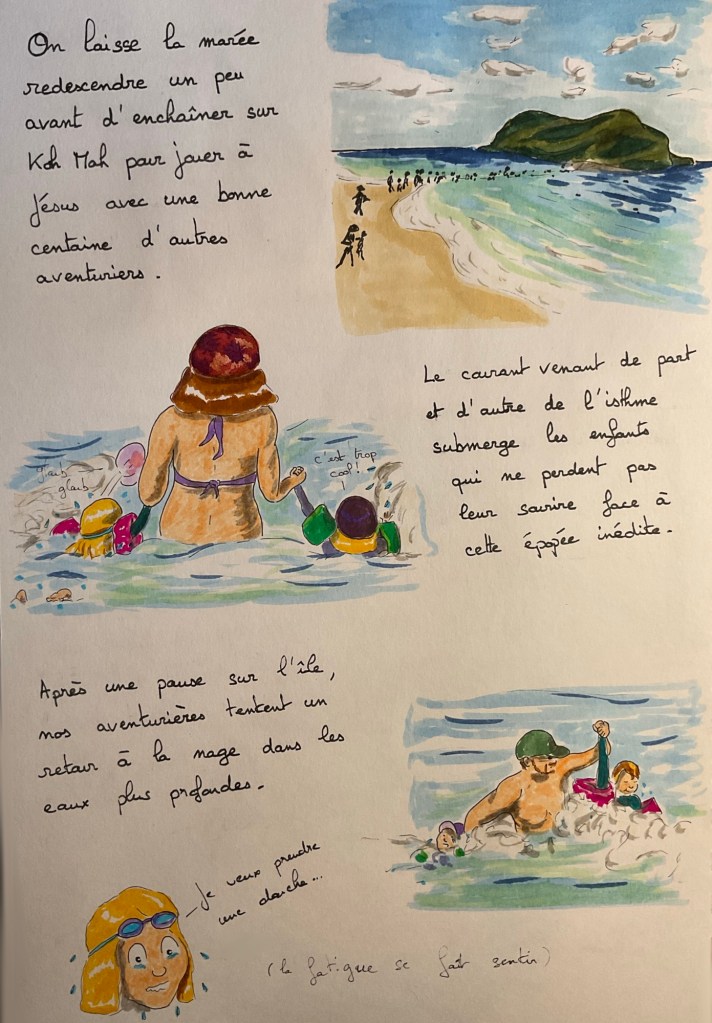 On laisse la marée
redescendre un peu
avant d'enchaîner sur
Koh Mah pour jouer à
Jésus avec une bonne
centaine d'autres
aventuriers.
Le courant venant de part
et d'autre de l'isthme
submerge les enfants
qui ne perdent pas
leur sourire face à
cette épopée inédite.
glaib
c'est trop
cool!
Après une pause sur l'île,
nos aventurières tentent un
retour à la nage dans les
eaux plus profondes.
Je veux prendre
une douche...
(la fatigue se fait sentir)